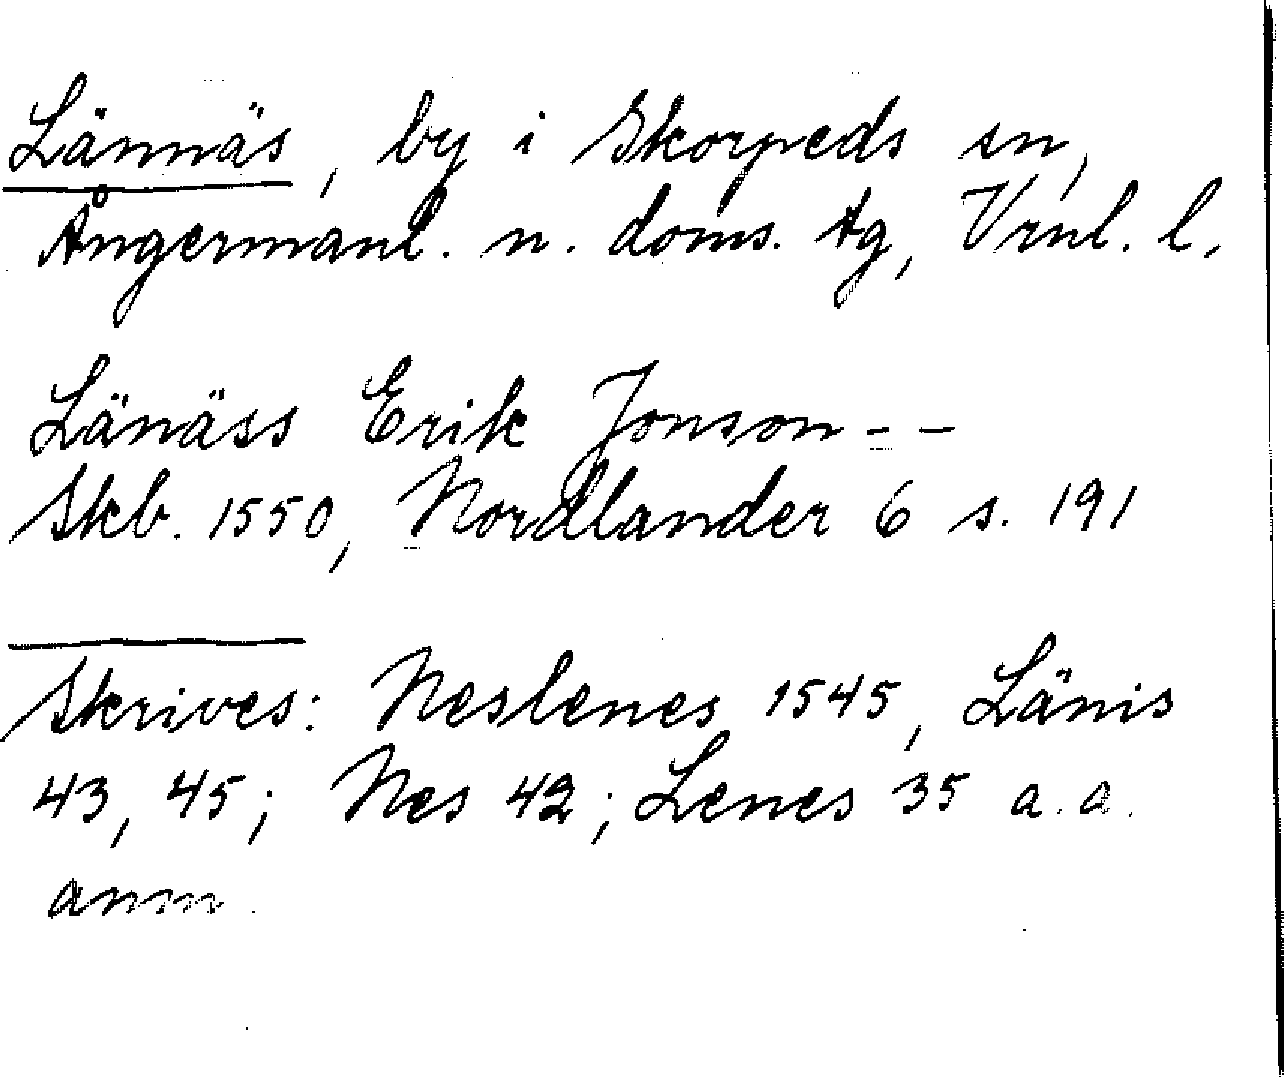 Lännäs, by i Skorpeds sn,
Ångermanl. n. doms. tg, Vrnl. l.
Länäss Erik Jonson - -
Skb. 1550, Nordlander 6 s. 191
Skrives: Neslenes 1545, Länis
43, 45; Nes 42; Lenes 35 a.a.
anm.